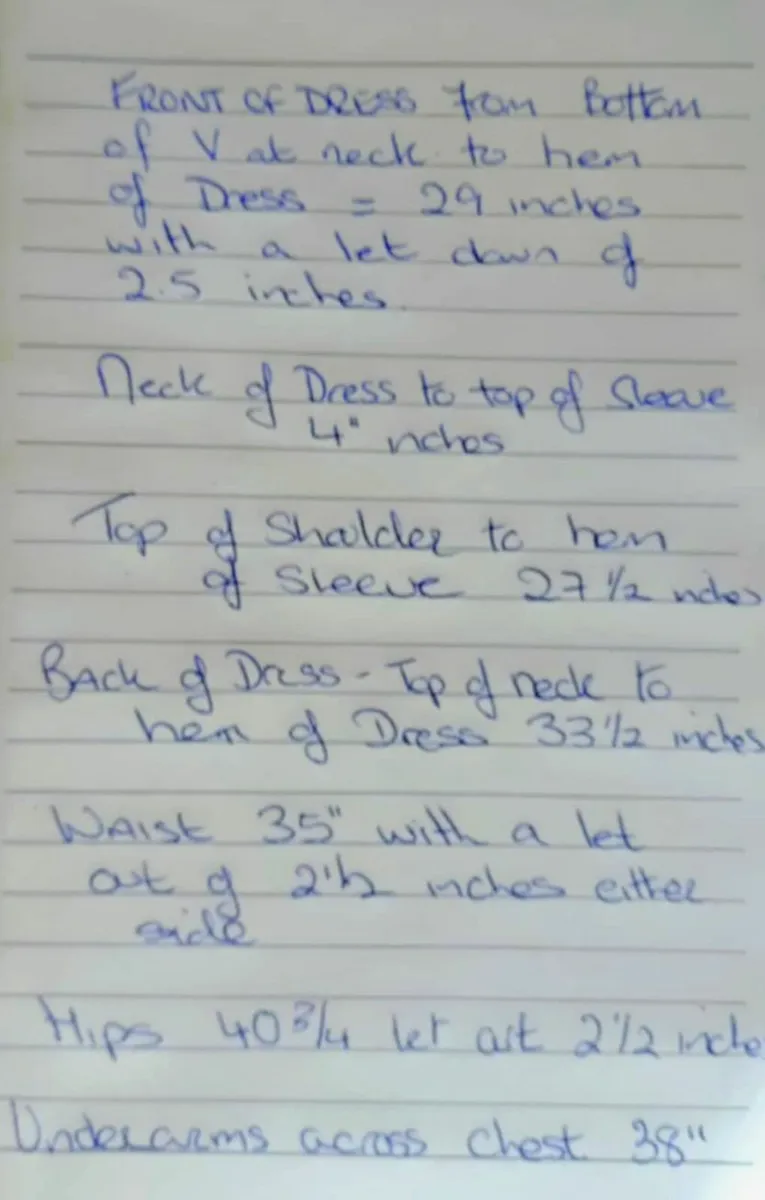 FRONT OF DRESS from Bottom
of V at neck to hem
of Dress = 29 inches
with a let down of
2.5 inches.
Neck of Dress to top of Sleeve
4" nches
Top of Shoulder to hem
of Sleeve 27 1/2 nches
BACK of Dress - Top of neck to
hem of Dress 33 1/2 inches
WAIST 35" with a let
out of 2 1/2 inches either
side
Hips 40 3/4 let out 2 1/2 inche
Underarms across chest 38"